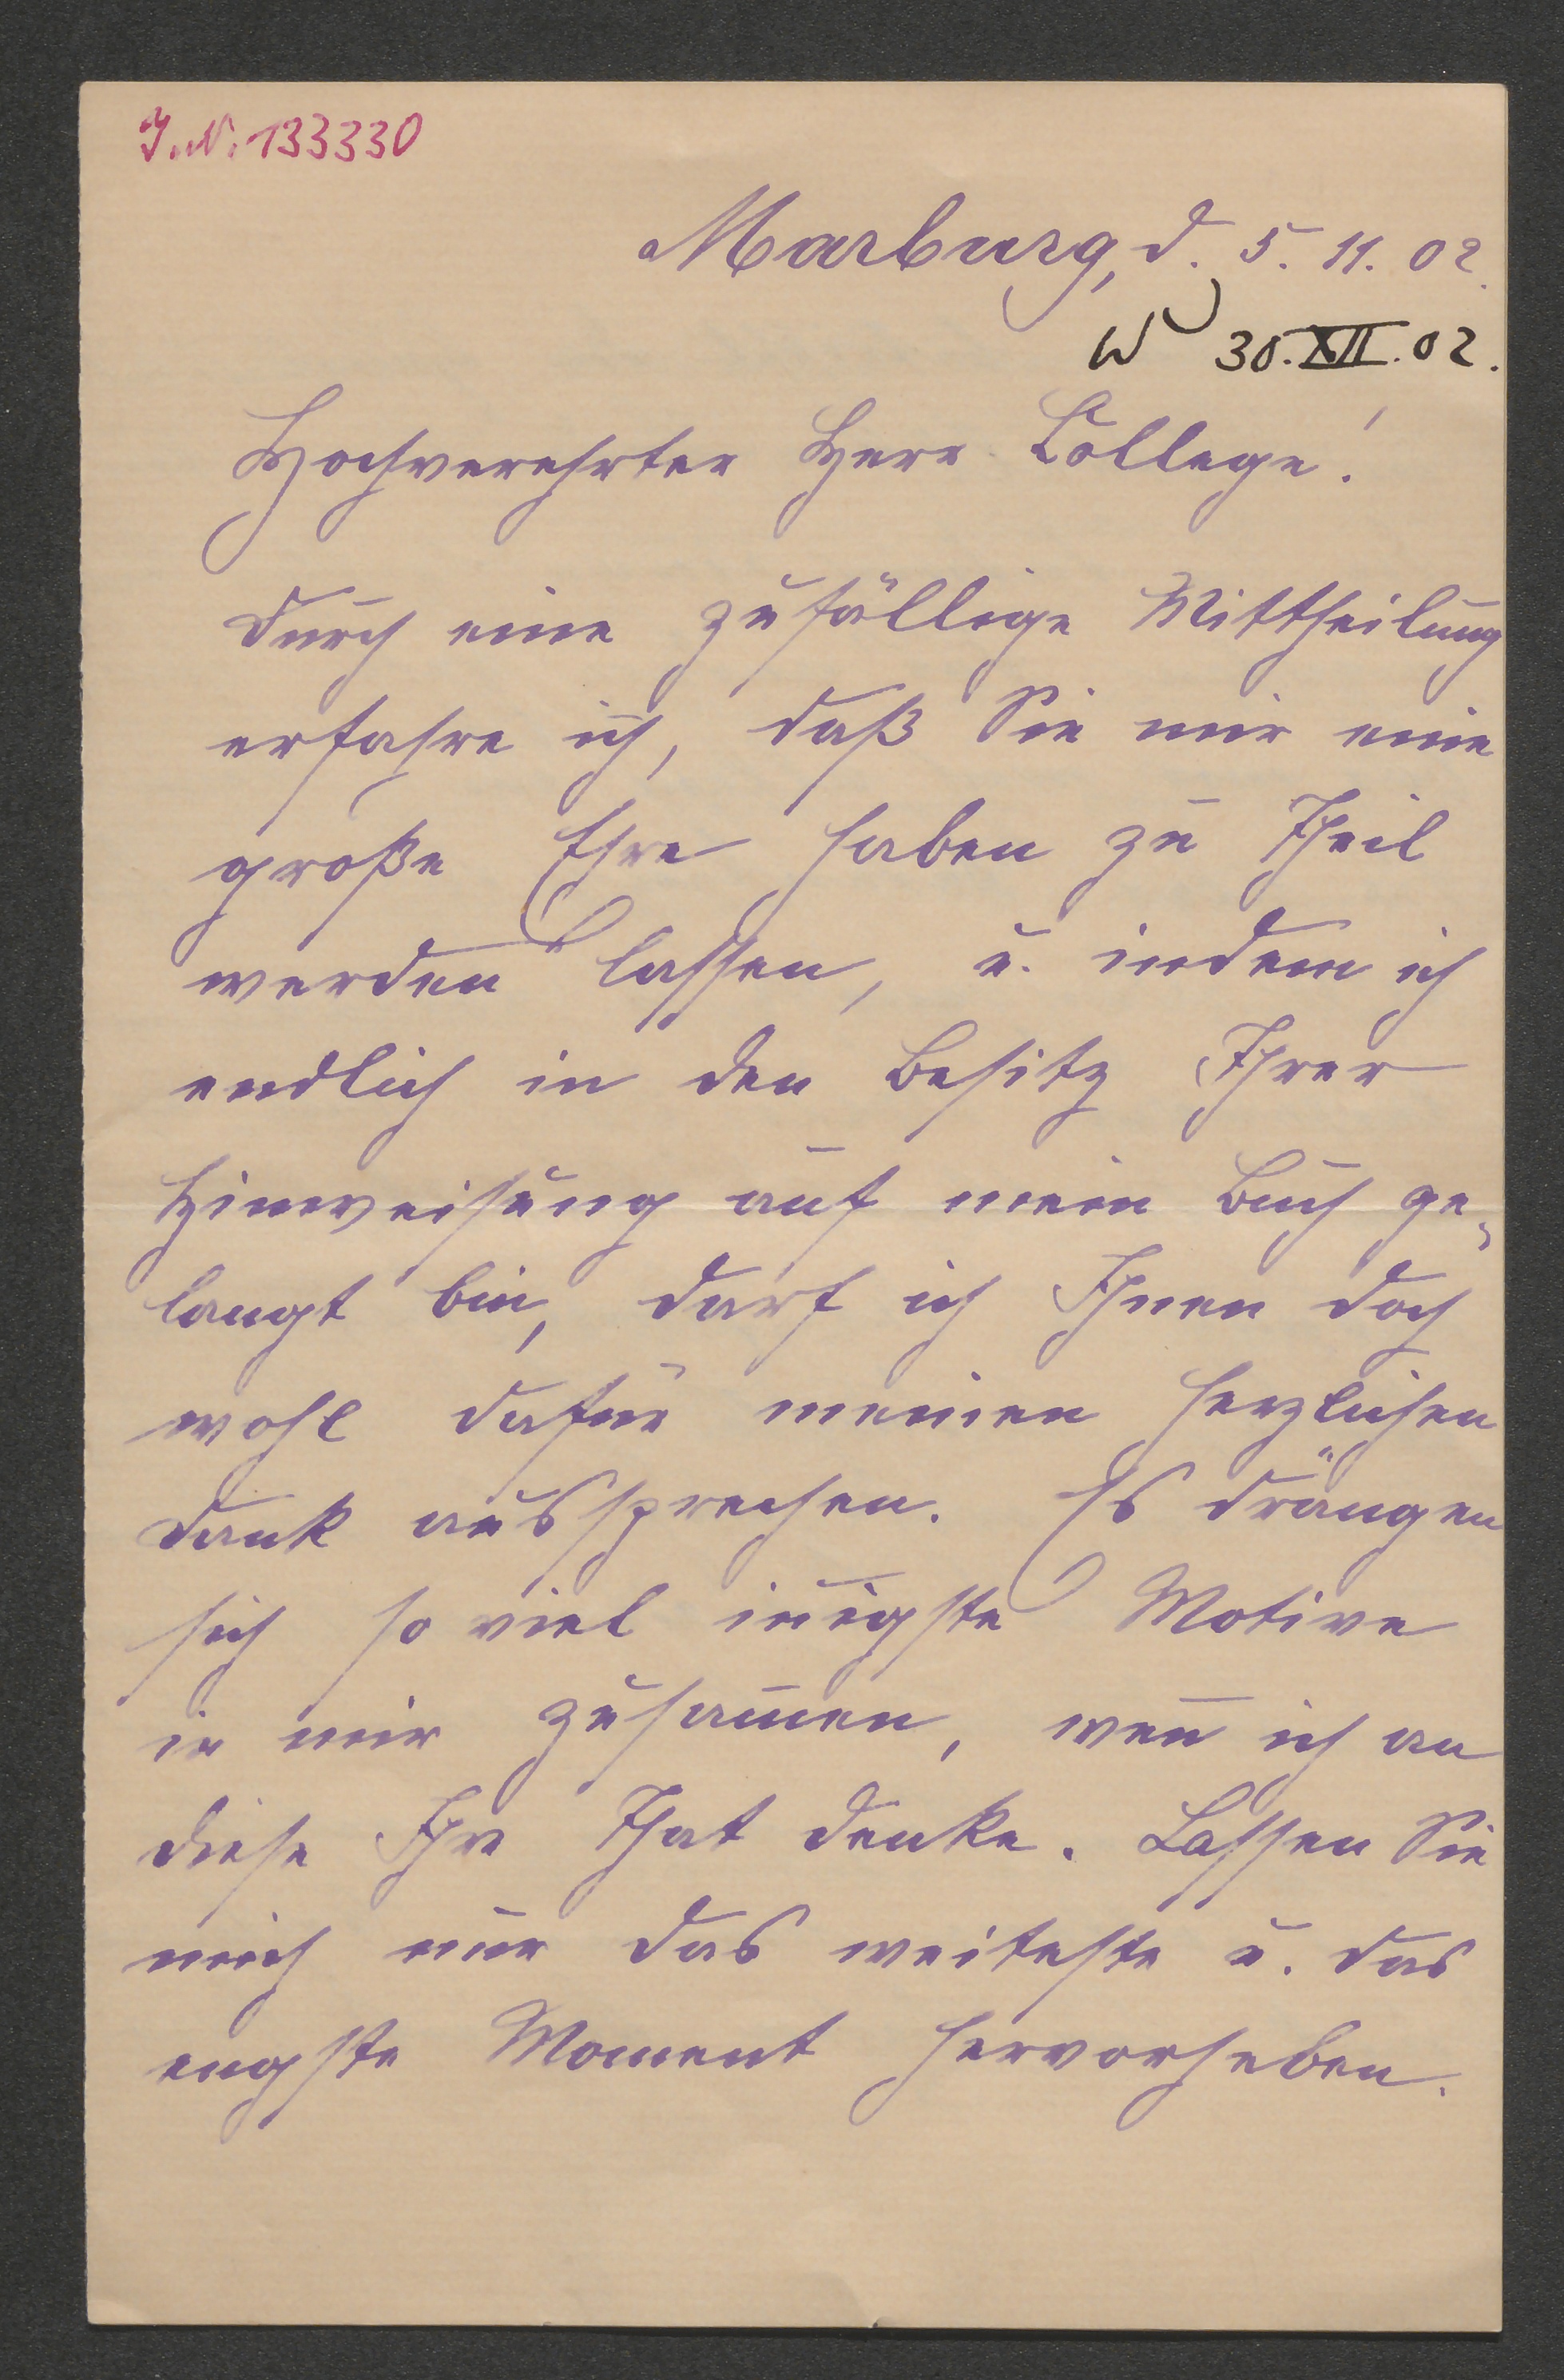 J. N. 133330
Marburg, d. 5. 11. 02.
W 30. XII. 02.
Hochverehrter Herr College!
Durch eine zufällige Mittheilung
erfahre ich, daß Sie mir eine
große Ehre haben zu Theil
werden lassen, u. indem ich
endlich in den Besitz Ihrer
Hinweisung auf mein Buch ge-
langt bin, darf ich Ihnen doch
wohl dafür meinen herzlichen
Dank aussprechen. Es drängen
sich so viel iñigste Motive
in mir zusam̄en, weñ ich an
diese Ihre That denke. Lassen Sie
mich nur das weiteste u. das
engste Moment hervorheben.